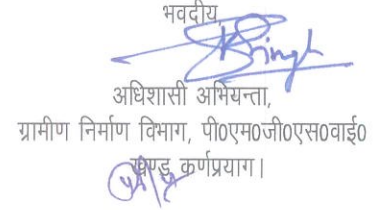 भवदीय,
KSingh
अधिशासी अभियन्ता,
ग्रामीण निर्माण विभाग, पी0एम0जी0एस0वाई0
खण्ड कर्णप्रयाग।